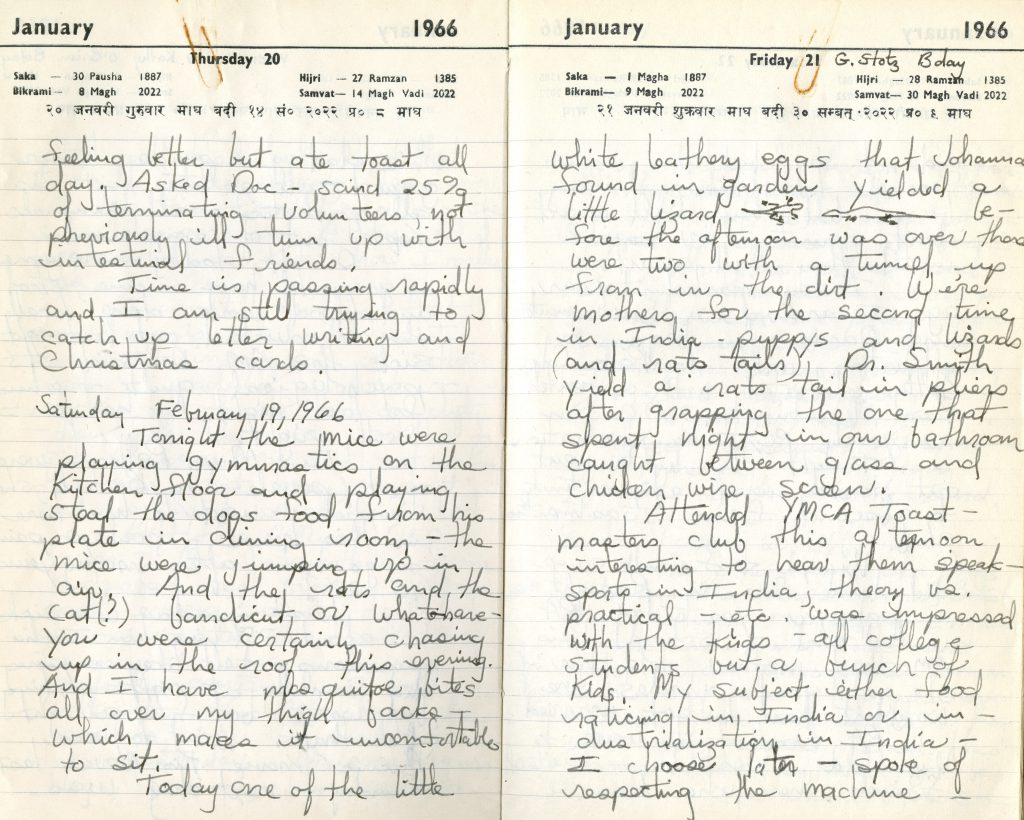 January 1966
Thursday 20
Saka — 30 Pausha 1887 Hijri — 27 Ramzan 1385
Bikrami— 8 Magh 2022 Samvat— 14 Magh Vadi 2022
२० जनवरी गुरुवार माघ बदी १४ सं० २०२२ प्र० ८ माघ
feeling better but ate toast all
day. Asked Doc – said 25%
of terminating volunteers not
previously ill turn up with
intestinal friends.
Time is passing rapidly
and I am still trying to
catch up letter writing and
Christmas cards.
Saturday February 19, 1966
Tonight the mice were
playing gymnastics on the
kitchen floor and playing
steal the dogs food from his
plate in dining room – the
mice were jumping up in
air. And the rats and the
cat(?) bandicut or whathave-
you were certainly chasing
up in the roof this evening.
And I have mosquitoe bites
all over my thigh backs –
which makes it uncomfortable
to sit.
Today one of the little
January 1966
Friday 21 G. Stotz Bday
Saka — 1 Magha 1887 Hijri — 28 Ramzan 1385
Bikrami— 9 Magh 2022 Samvat— 30 Magh Vadi 2022
२१ जनवरी शुक्रवार माघ बदी ३० सम्बत् २०२२ प्र० ६ माघ
white leathery eggs that Johanna
found in garden yielded a
little lizard be-
fore the afternoon was over there
were two with a tunnel up
from in the dirt. We're
mothers for the second time
in India – puppys and lizards
(and rats tails, Dr. Smith
yield a rats-tail in pliers
after grapping the one that
spent night in our bathroom
caught between glass and
chicken wire screen.
Attended YMCA Toast-
masters club this afternoon
interesting to hear them speak –
sports in India, theory vs.
practical – etc was impressed
with the kids – all college
students but a bunch of
kids. My subject either food
rationing in India or in-
dustrialization in India –
I choose later – spoke of
respecting the machine –